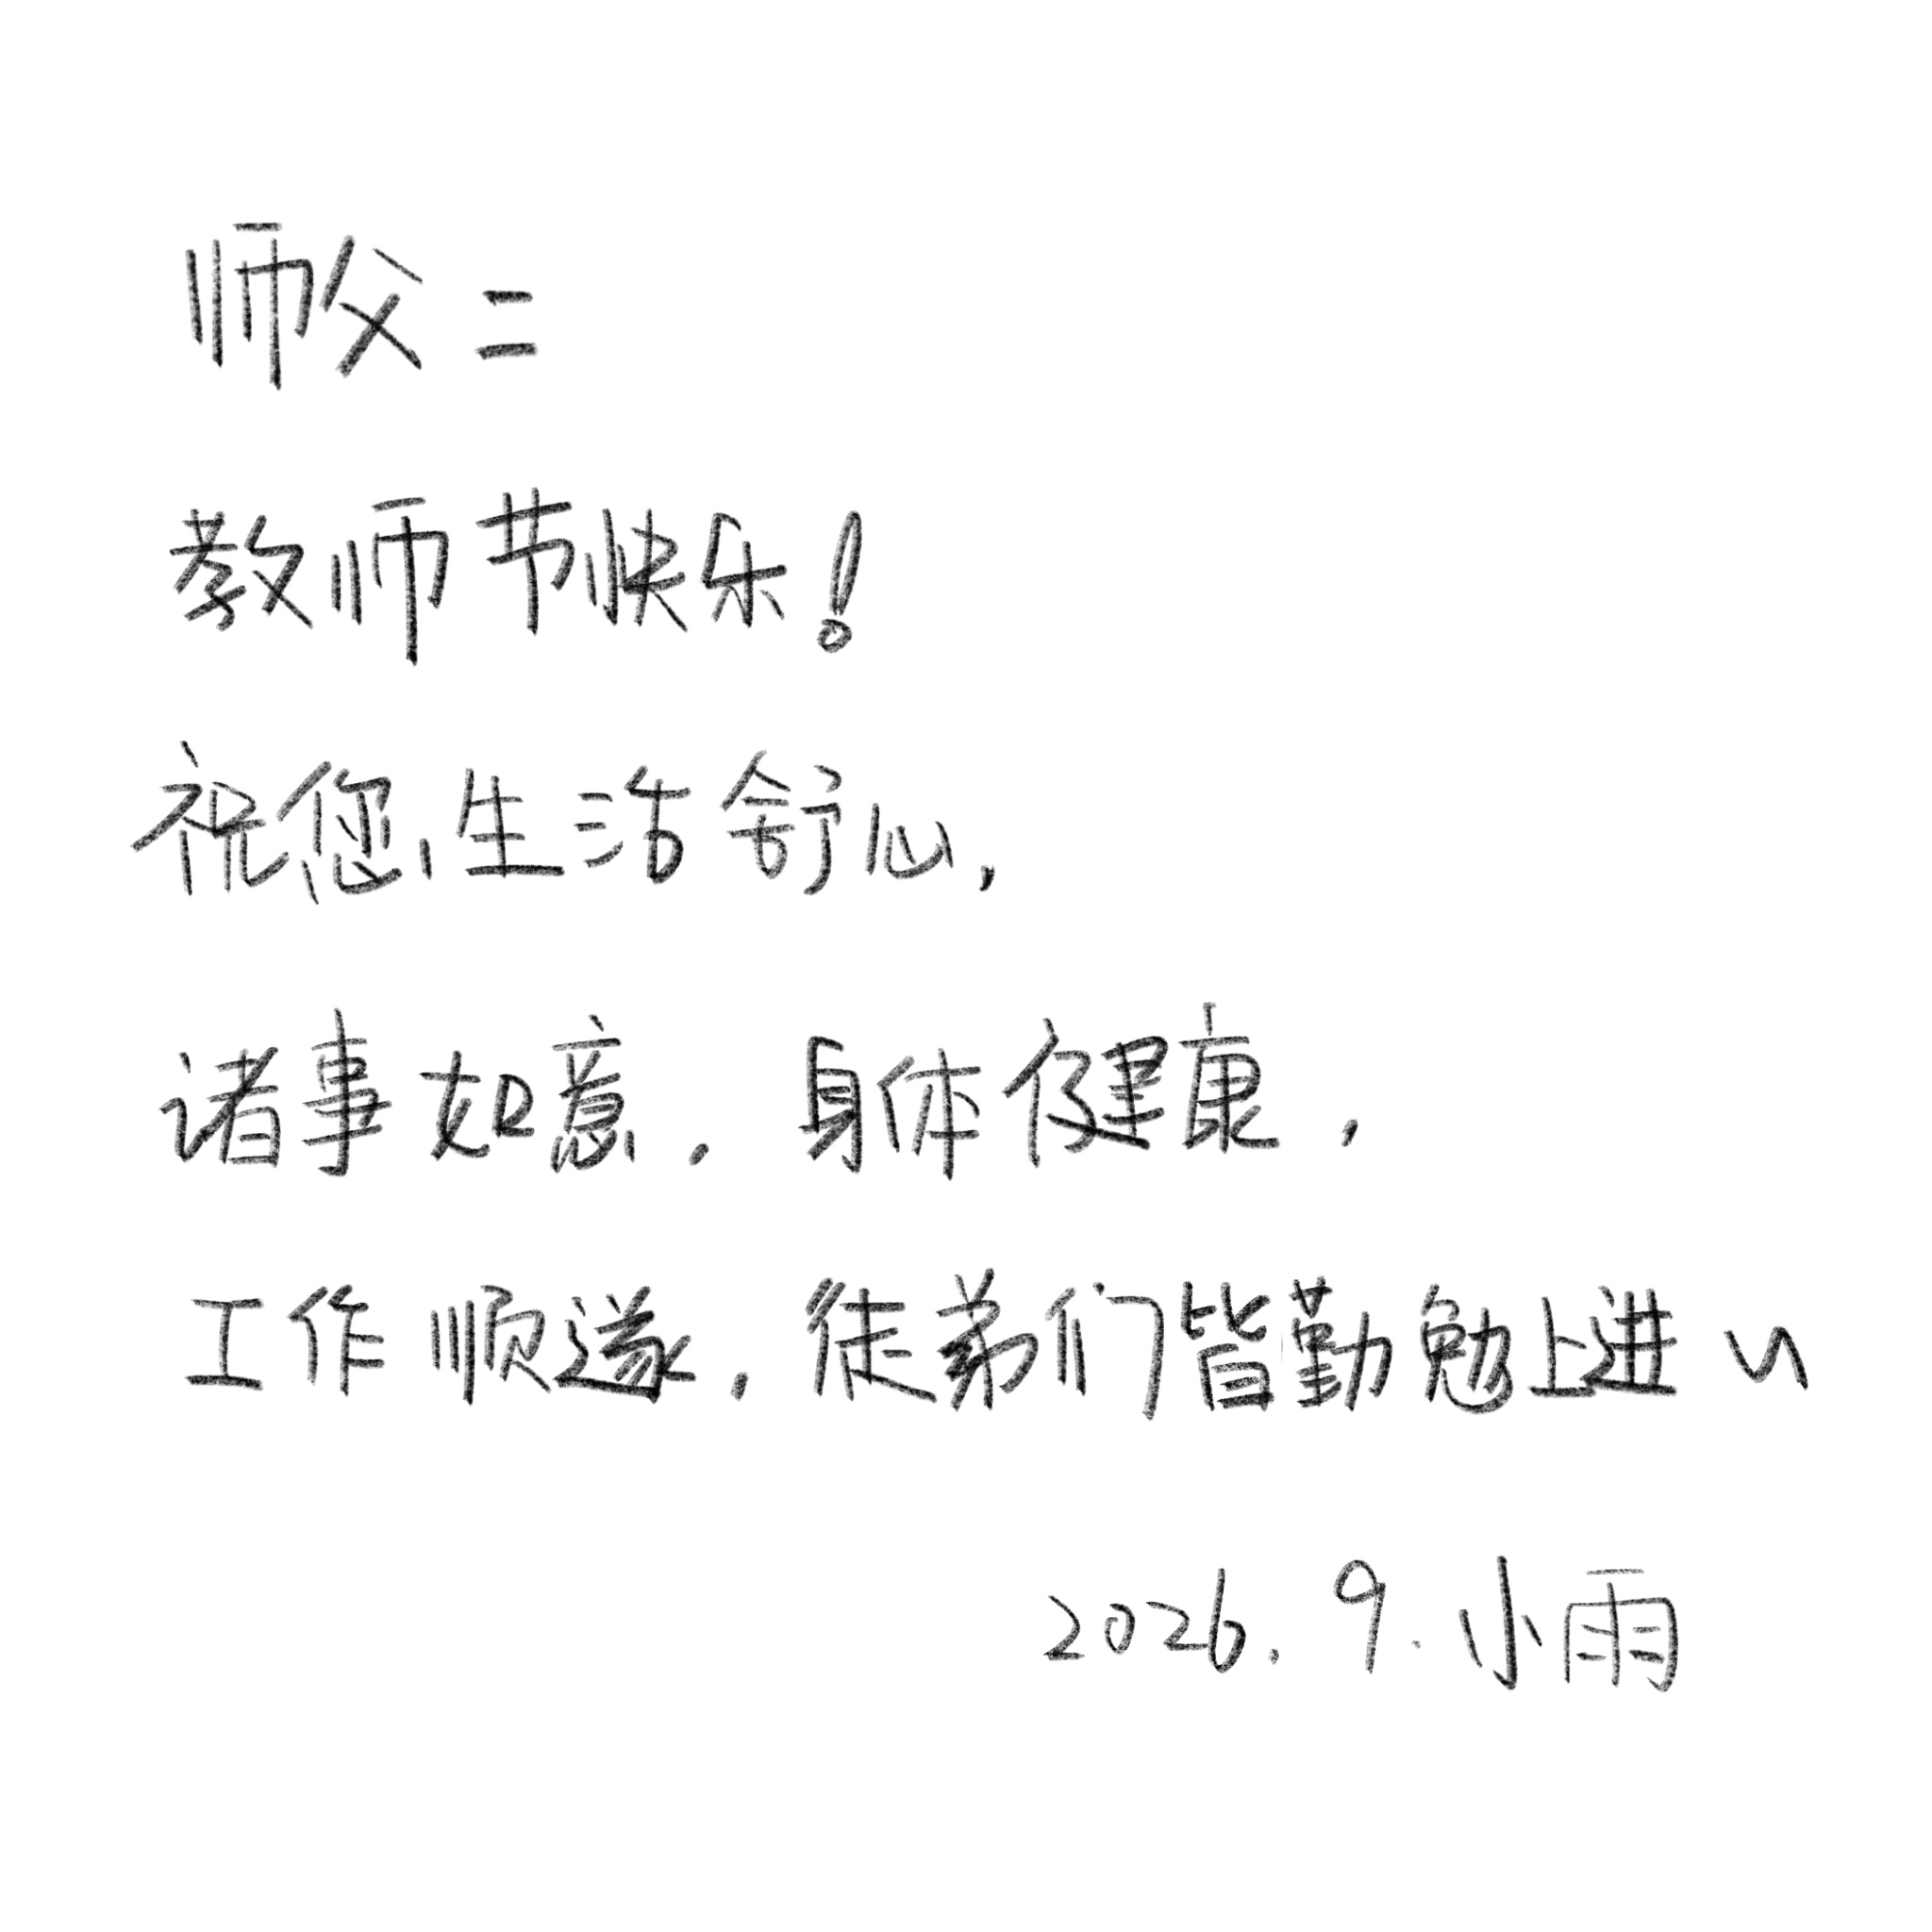 师父：
教师节快乐！
祝您生活舒心，
诸事如意，身体健康，
工作顺遂，徒弟们皆勤勉上进～
2026.9.小雨